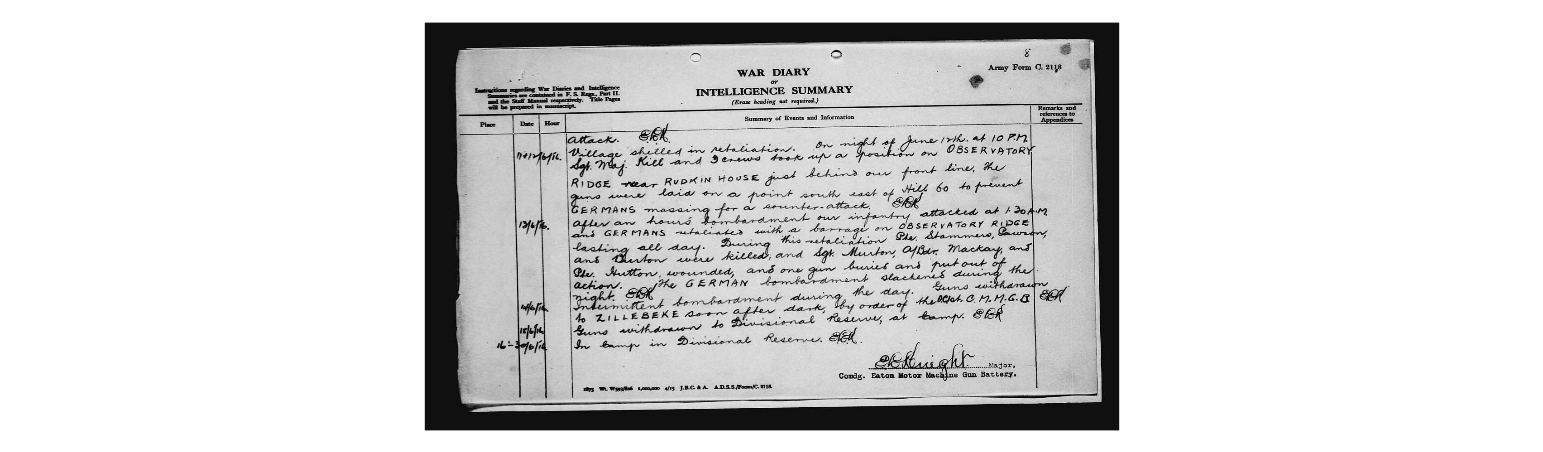 8
Army Form C. 2118
WAR DIARY
or
INTELLIGENCE SUMMARY
(Erase heading not required.)
Instructions regarding War Diaries and Intelligence
Summaries are contained in F. S. Regs., Part II.
and the Staff Manual respectively. Title Pages
will be prepared in manuscript.
Place Date Hour Summary of Events and Information Remarks and
references to
Appendices
attack. ECK
11+12/6/16. Village shelled in retaliation. On night of June 12th. at 10 P.M.
Sgt. Maj. Kill and 3 crews took up a position on OBSERVATORY
RIDGE near RUDKIN HOUSE just behind our front line. The
guns were laid on a point south east of Hill 60 to prevent
GERMANS massing for a counter-attack. ECK
13/6/16. After an hours bombardment our infantry attacked at 1.30 A.M.
and GERMANS retaliated with a barrage on OBSERVATORY RIDGE
lasting all day. During this retaliation Pte. Stammers, Pawson,
and Burton were killed, and Sgt. Murton, A/Bdr. Mackay, and
Pte. Hutton, wounded, and one gun buried and put out of
action. The GERMAN bombardment slackened during the
night. ECK
14/6/16. Intermittent bombardment during the day. Guns withdrawn
to ZILLEBEKE soon after dark, by order of the Adjt. C.M.M.G.B ECK
15/6/16. Guns withdrawn to Divisional Reserve, at Camp. ECK
16-30/6/16. In Camp in Divisional Reserve. ECK
ECKnight Major,
Comdg. Eaton Motor Machine Gun Battery.
1875 Wt. W593/826 1,000,000 4/15 J.B.C. & A. A.D.S.S./Forms/C. 2118.